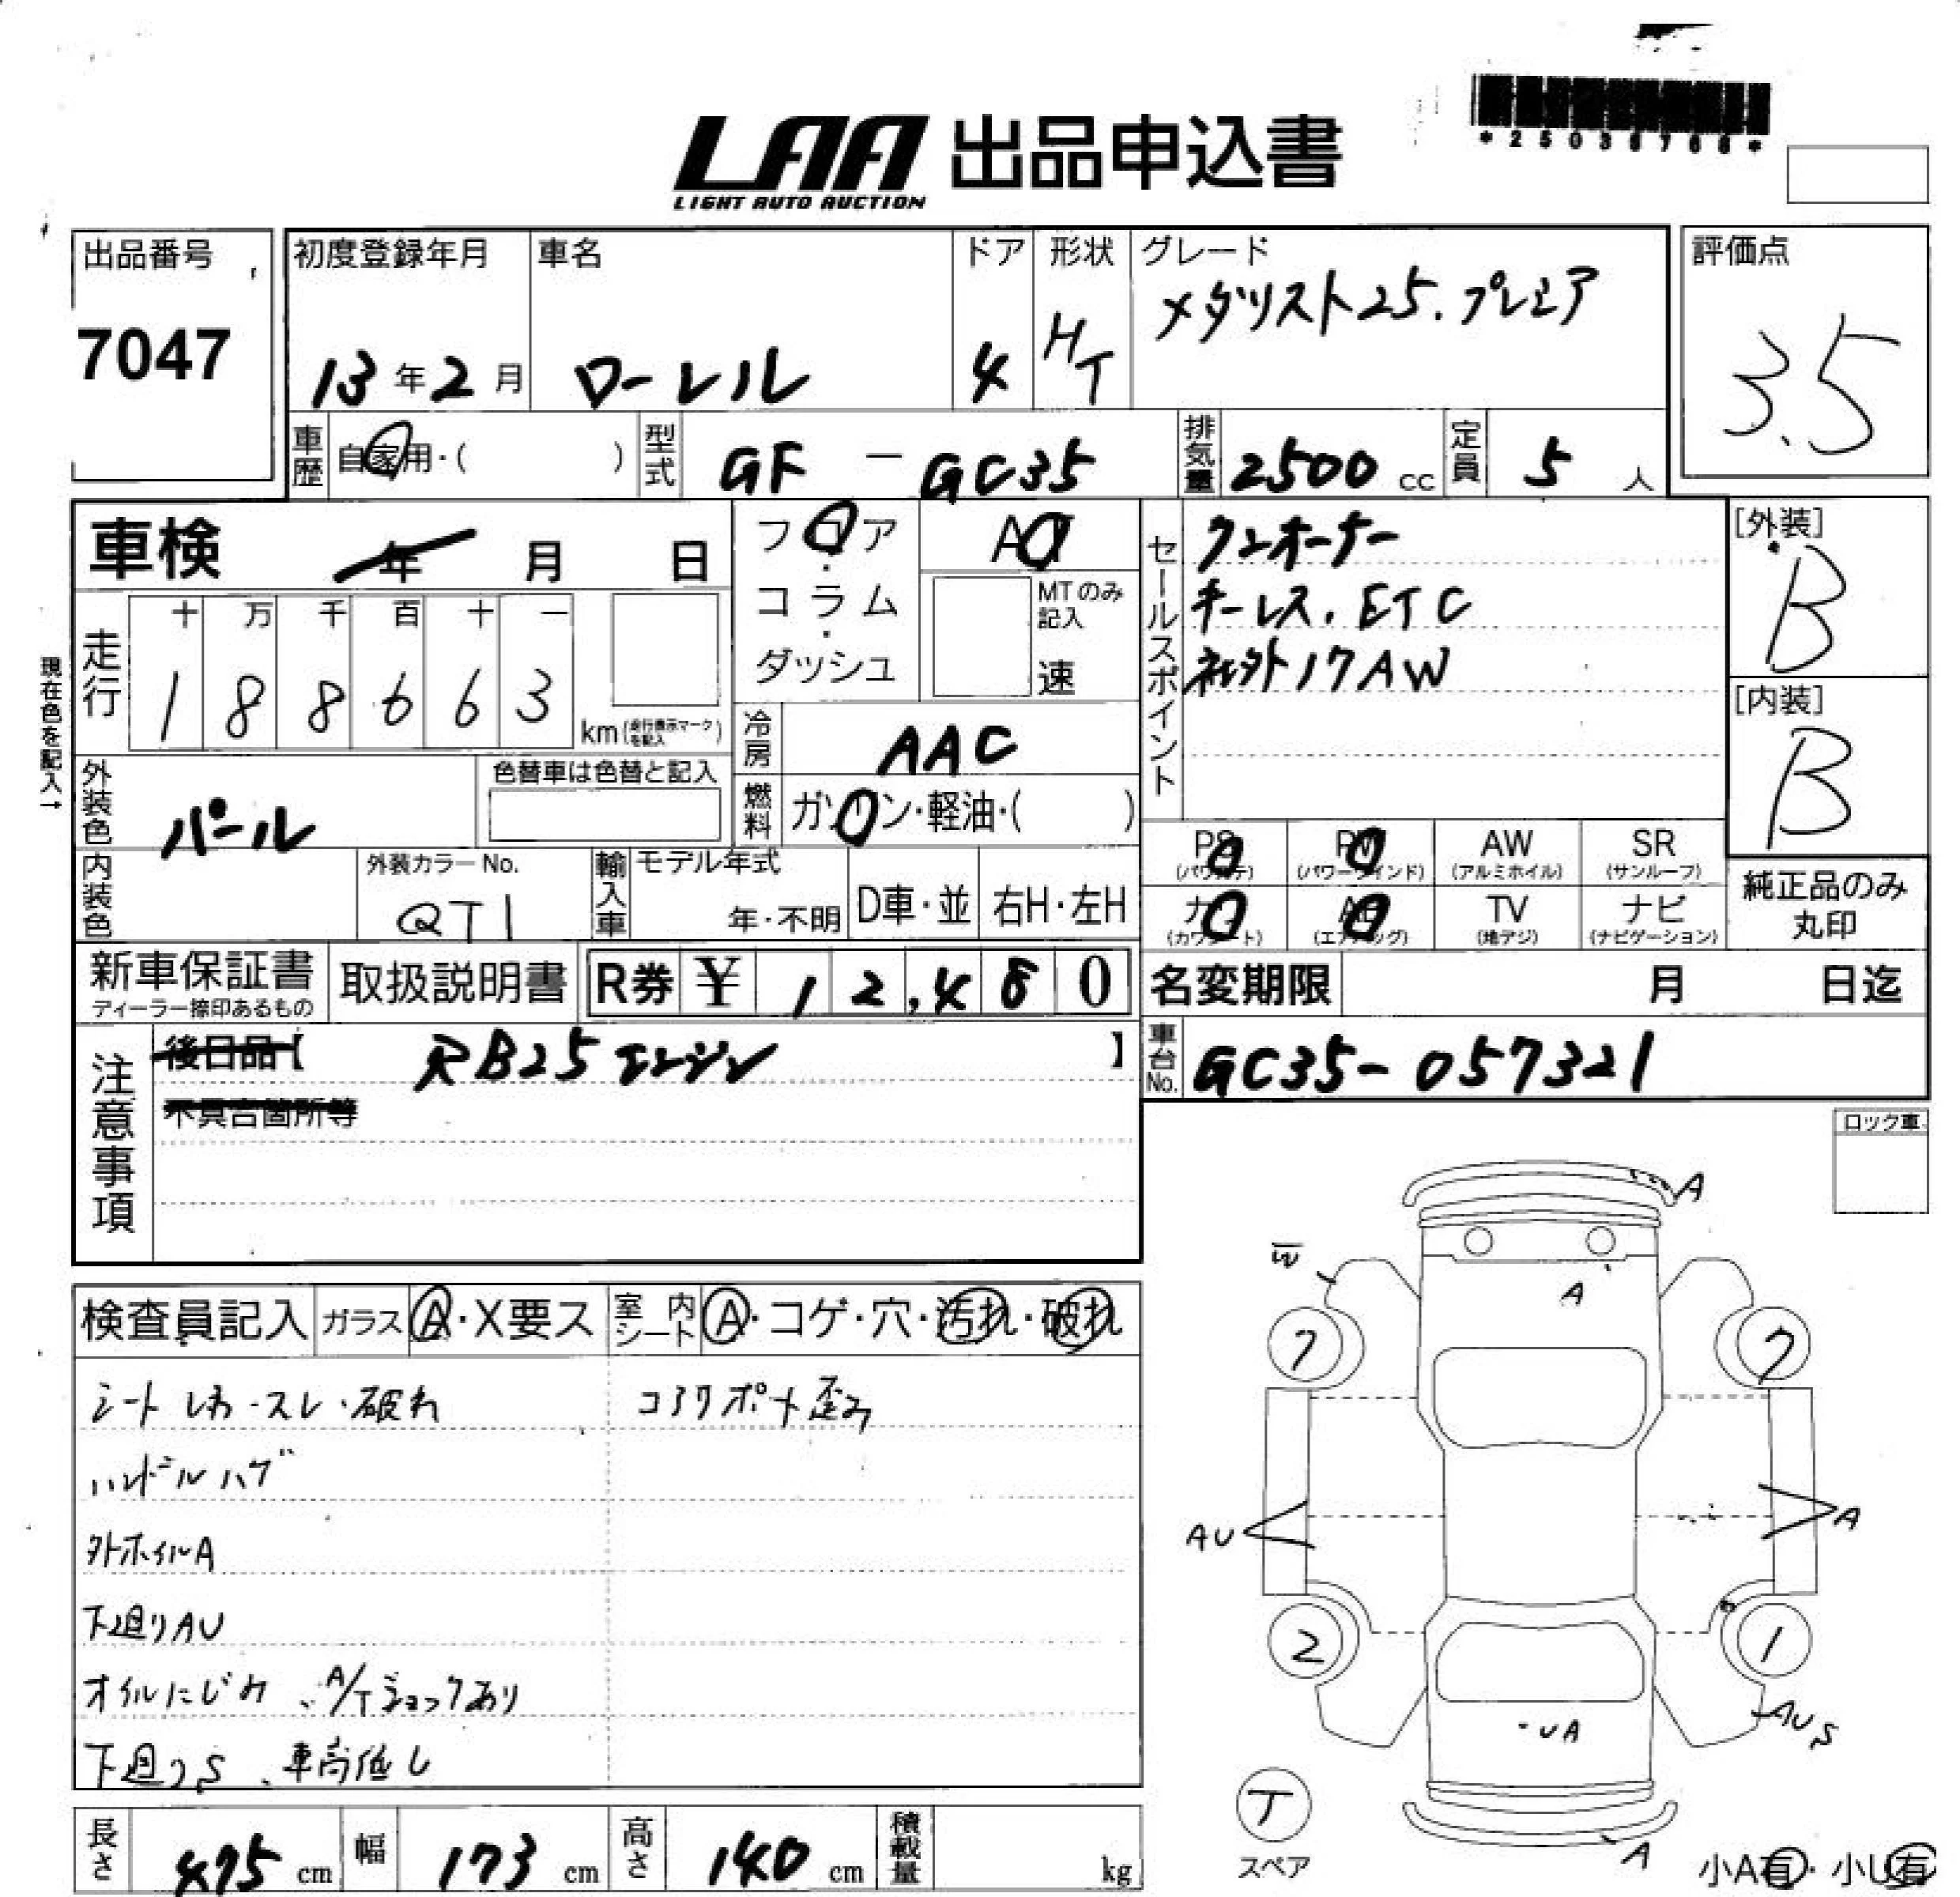 *25036766*
LAA 出品申込書
LIGHT AUTO AUCTION
出品番号
7047
初度登録年月
13年2月
車名
ローレル
ドア
4
形状
HT
グレード
メダリスト25.プレミア
評価点
3.5
車歴 自家用・( )
型式 GF - GC35
排気量 2500 cc
定員 5 人
車検 年 月 日
フロア・コラム・ダッシュ
AT
MTのみ記入
速
セールスポイント
ワンオーナー
キーレス.ETC
社外17AW
[外装]
B
[内装]
B
現在色を記入→
走行
十 万 千 百 十 一
1 8 8 6 6 3
km(走行表示マークを記入)
冷房 AAC
外装色 パール
色替車は色替と記入
燃料 ガソリン・軽油・( )
内装色
外装カラーNo.
QT1
輸入車
モデル年式
年・不明
D車・並
右H・左H
PS (パワステ)
PW (パワーウインド)
AW (アルミホイル)
SR (サンルーフ)
カワ (カワシート)
AB (エアバッグ)
TV (地デジ)
ナビ (ナビゲーション)
純正品のみ丸印
新車保証書
ディーラー捺印あるもの
取扱説明書
R券 ¥ 12,480
名変期限 月 日迄
注意事項
後日品【 RB25エンジン 】
不具合箇所等
車台No. GC35-057321
ロック車
検査員記入
ガラス A・X要ス
室内シート A・コゲ・穴・汚れ・破れ
シートしわ・スレ・破れ
コアサポート歪み
ハンドルハゲ
外ホイルA
下廻りAU
オイルにじみ、A/Tショックあり
下廻りS、車高低し
A
W
A
7
7
AU
A
2
1
UA
AUS
T
スペア
A
小A有・小U有
長さ 475 cm
幅 173 cm
高さ 140 cm
積載量 kg